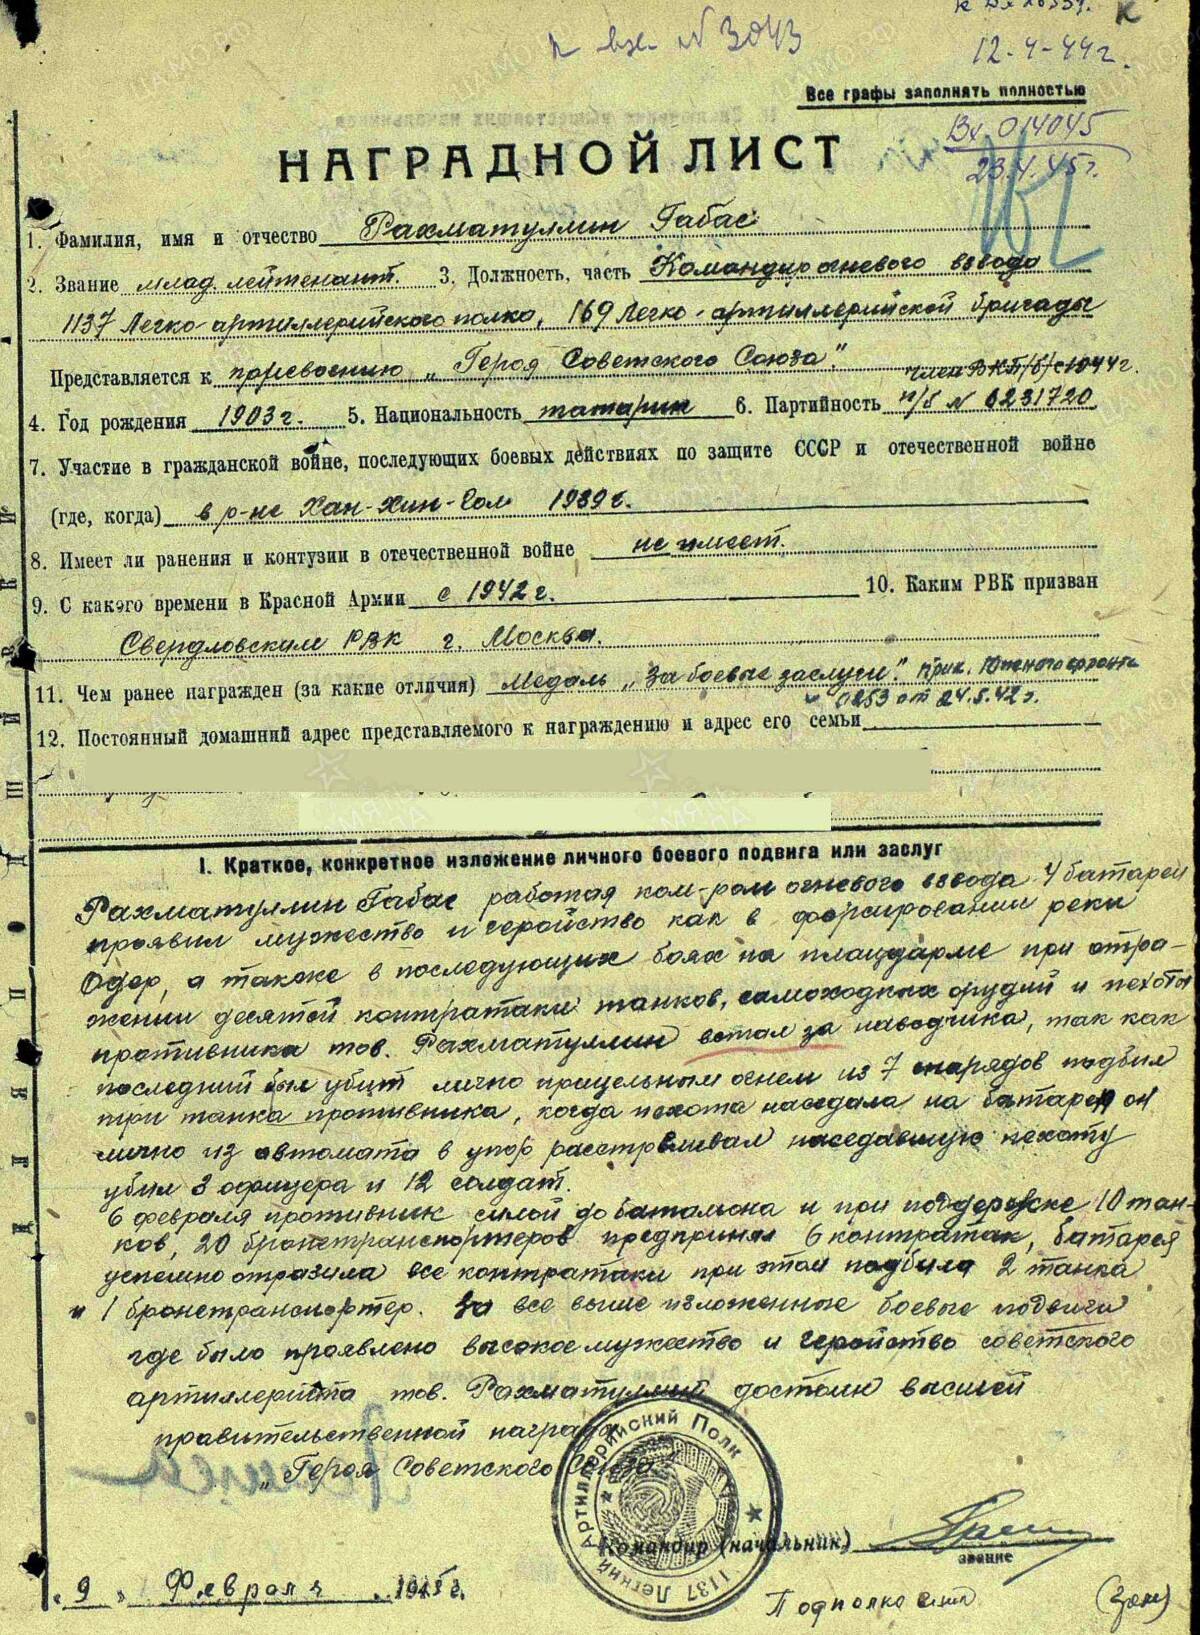 12-4-44г.
к вх. N 3043
Все графы заполнять полностью
Вх 014045
23.4.45г.
НАГРАДНОЙ ЛИСТ
1. Фамилия, имя и отчество Рахматуллин Габас
2. Звание млад. лейтенант. 3. Должность, часть Командир огневого взвода
1137 Легко-артиллерийского полка, 169 Легко-артиллерийской бригады
Представляется к присвоению „Героя Советского Союза". член ВКП/б/ с 1944г.
4. Год рождения 1903г. 5. Национальность татарин 6. Партийность п/б N 6231720
7. Участие в гражданской войне, последующих боевых действиях по защите СССР и отечественной войне
(где, когда) в р-не Хан-Хин-Гол 1939г.
8. Имеет ли ранения и контузии в отечественной войне не имеет.
9. С какого времени в Красной Армии с 1942г. 10. Каким РВК призван
Свердловским РВК г. Москва.
11. Чем ранее награжден (за какие отличия) Медаль „За боевые заслуги". Прик. Южного фронта
0253 от 24.5.42г.
12. Постоянный домашний адрес представляемого к награждению и адрес его семьи
I. Краткое, конкретное изложение личного боевого подвига или заслуг
Рахматуллин Габас работая ком-ром огневого взвода 4 батареи
проявил мужество и геройство как в форсировании реки
Одер, а также в последующих боях на плацдарме при отра-
жении десятой контратаки танков, самоходных орудий и пехоты
противника тов. Рахматуллин встал за наводчика, так как
последний был убит лично прицельным огнем из 7 снарядов подбил
три танка противника, когда пехота наседала на батарею он
лично из автомата в упор расстреливал наседавшую пехоту
убил 3 офицера и 12 солдат.
6 февраля противник силой до батальона и при поддержке 10 тан-
ков, 20 бронетранспортеров предпринял 6 контратак, батарея
успешно отразила все контратаки при этом подбила 2 танка
и 1 бронетранспортер. За все выше изложенные боевые подвиги
где было проявлено высокое мужество и геройство советского
артиллериста тов. Рахматуллин достоин высшей
правительственной награды
„Героя Советского Союза"
1137 Легкий Артиллерийский Полк
Командир (начальник)
звание
„9" Февраля 1945г.
Подполковник